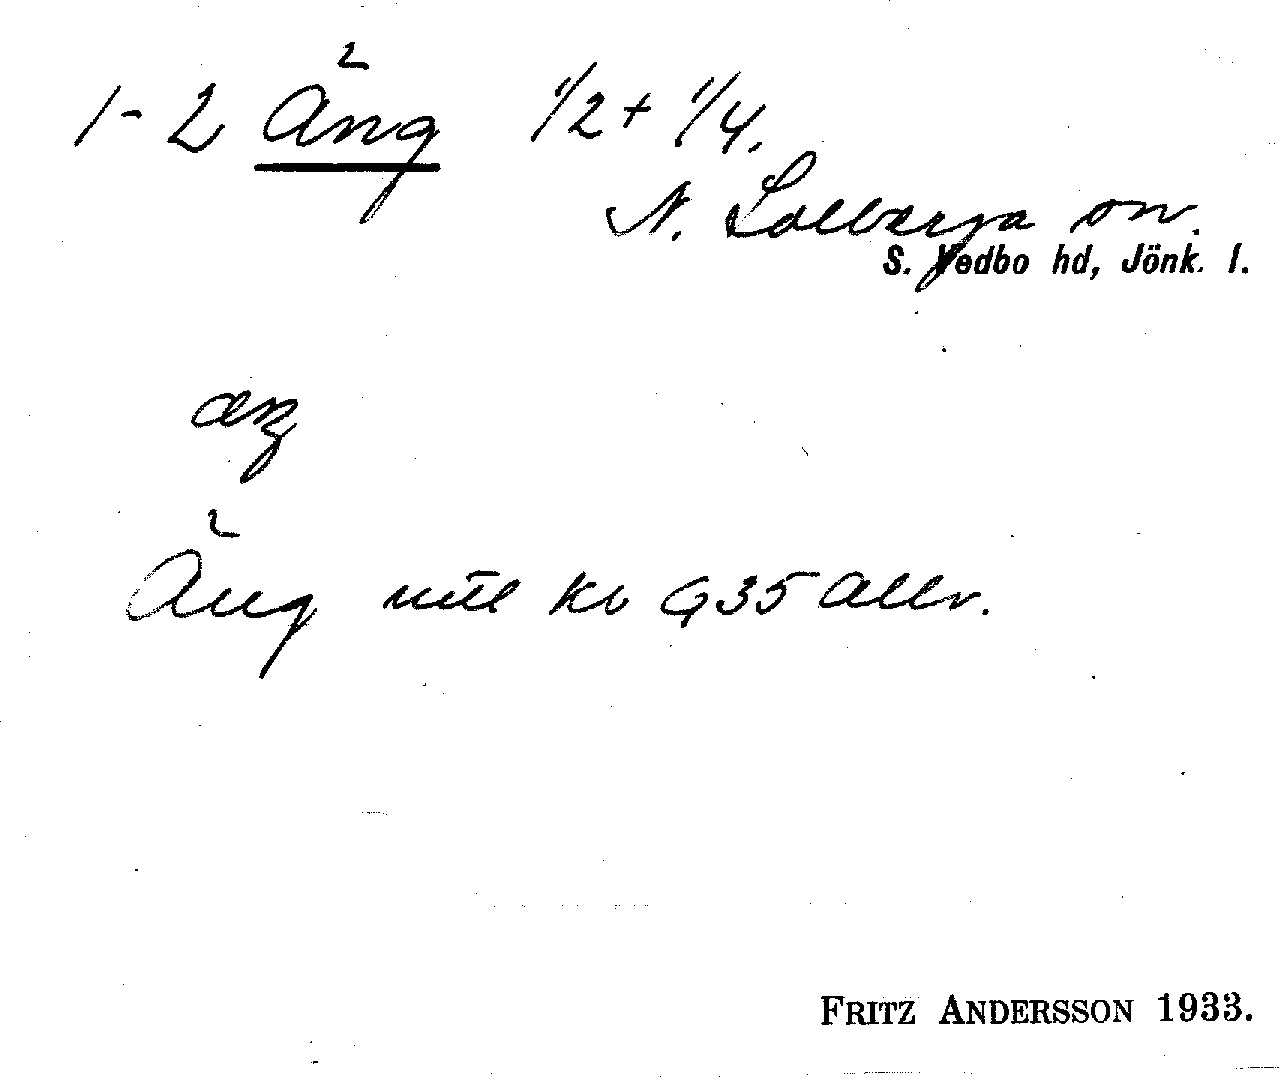 1-2 Äng 1/2 + 1/4.
N. Solberga sn.
S. Vedbo hd, Jönk. l.
äŋ
Äng mtl kb G35 Allr.
FRITZ ANDERSSON 1933.